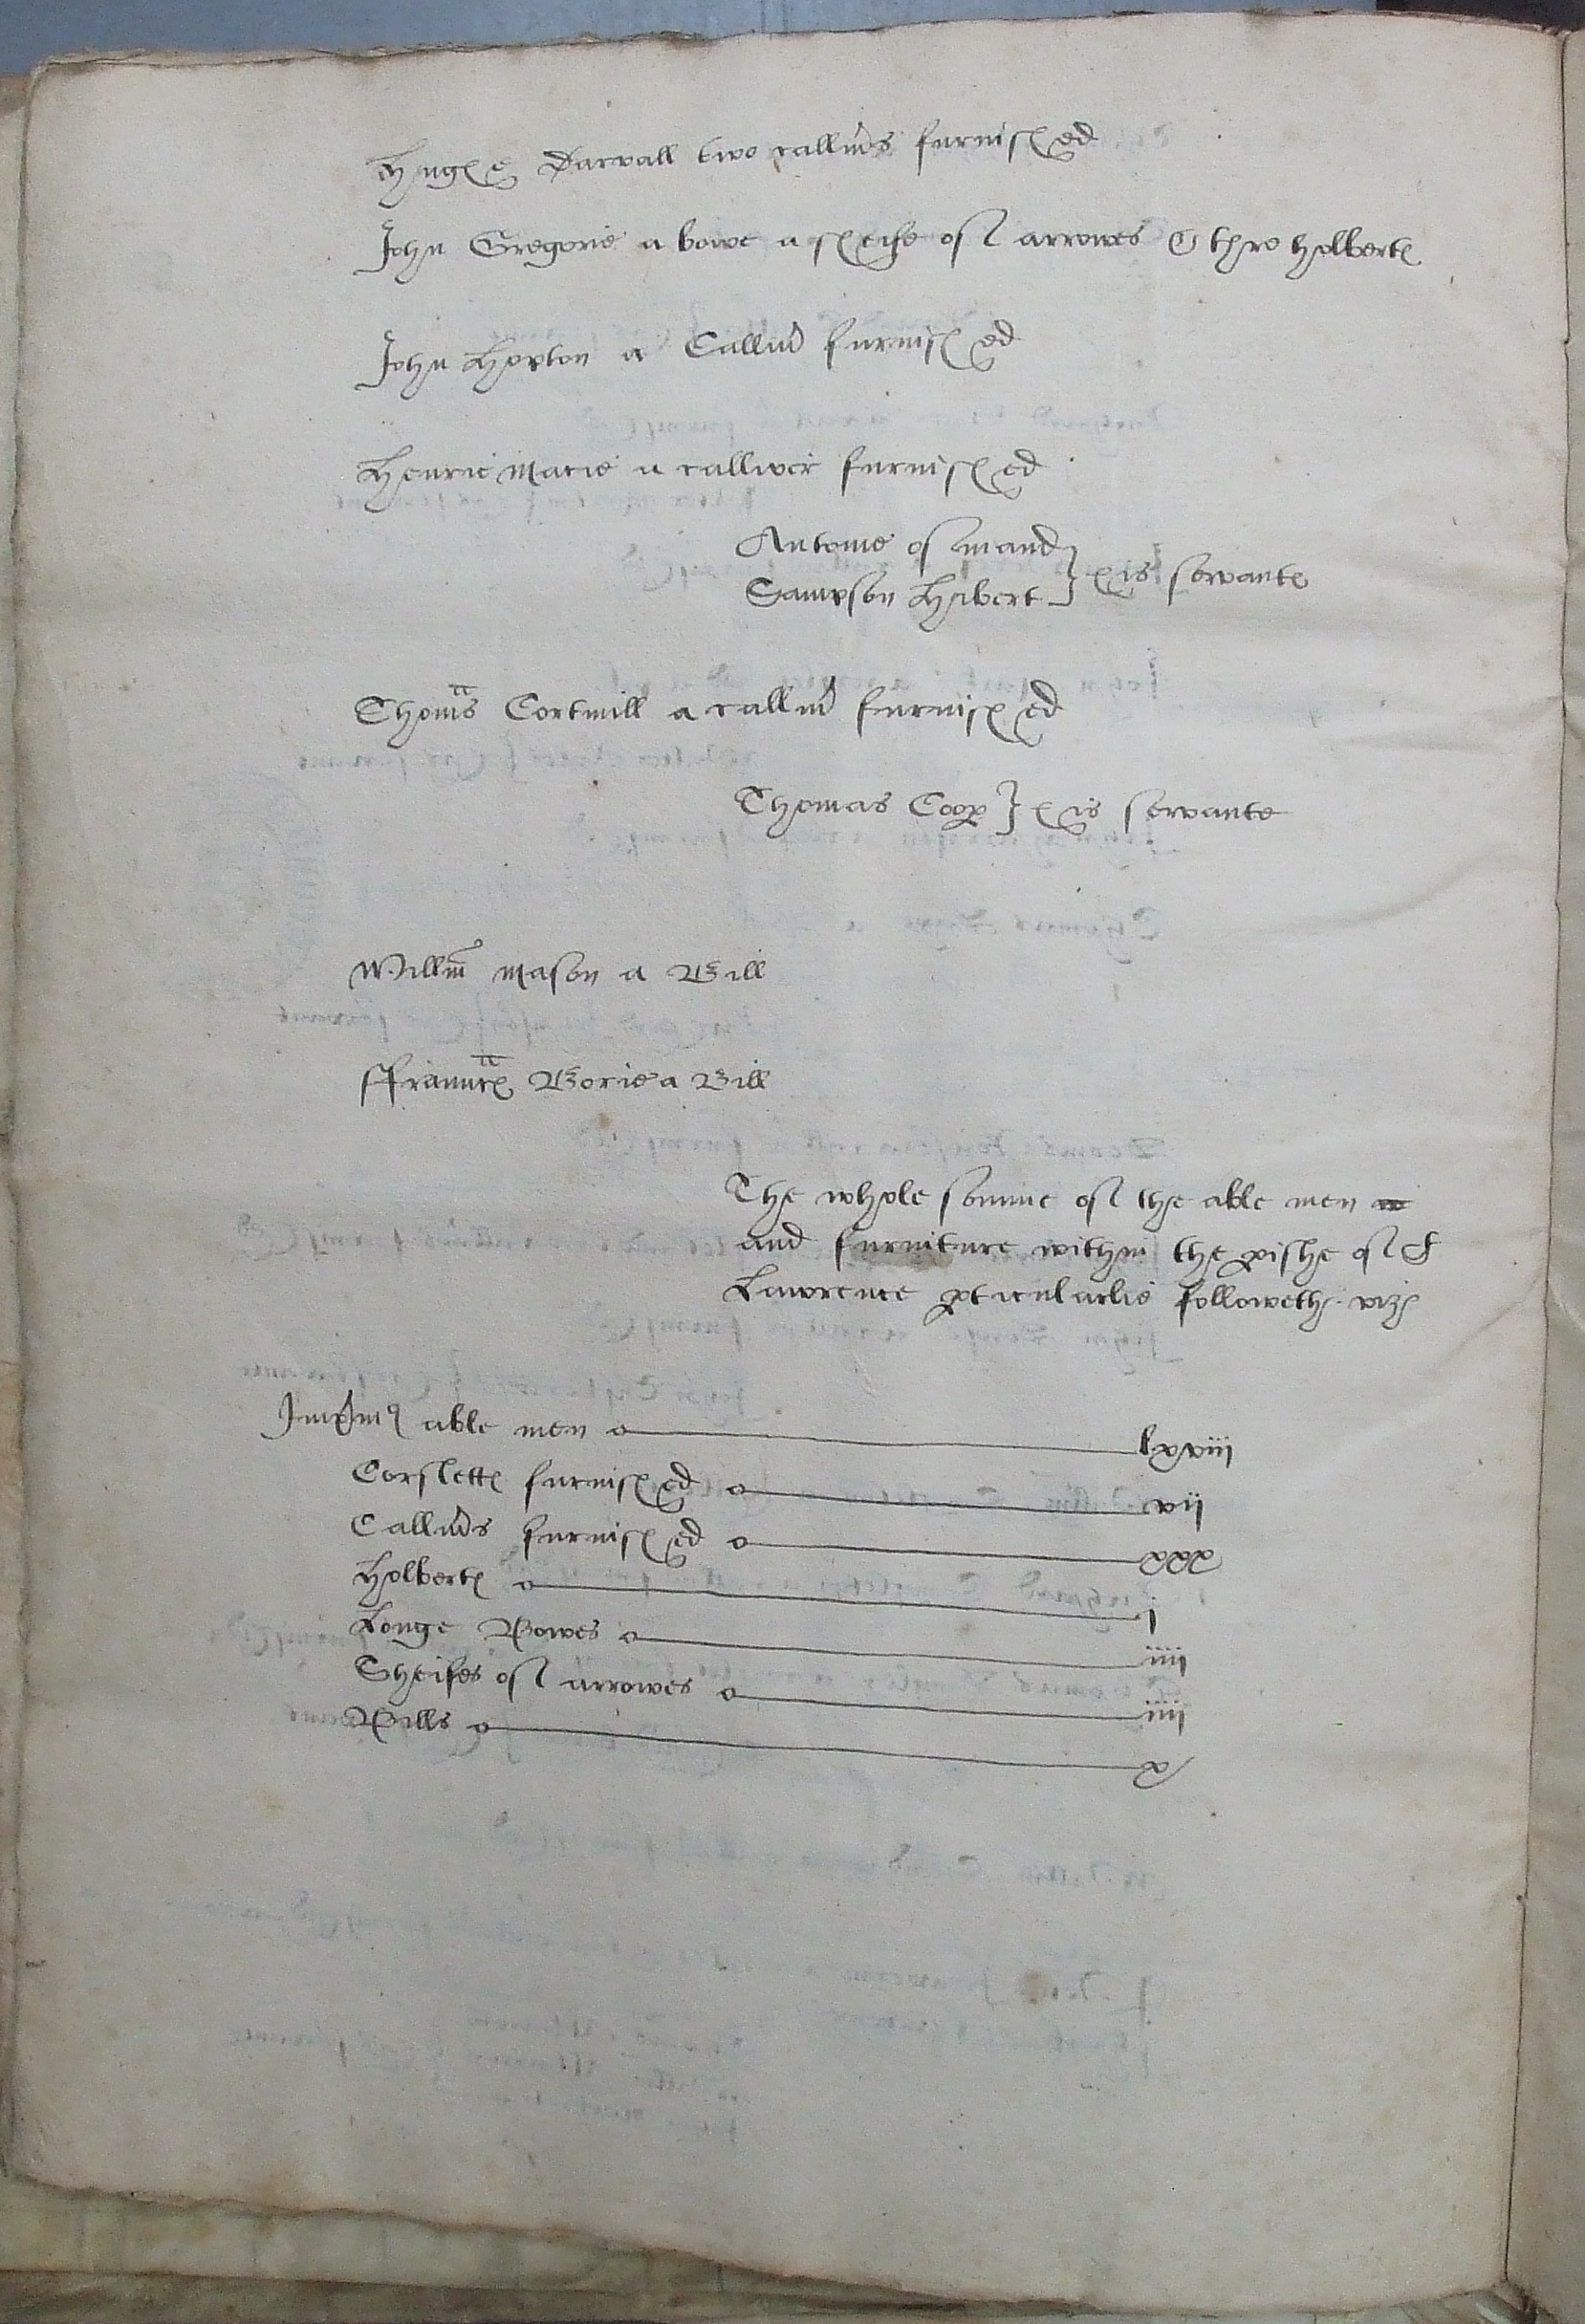 Hughe Darvall two callivrs furnished
John Gregorie a bowe a sheife of arrowes & thro holbertes
John Horton a Callivr furnished
Henrie Marie a calliver furnished
Antonie osmand
Sampson Hibert } his servantes
Thomas Cortmill a callivr furnished
Thomas Coop } his servante
Willm Mason a Bill
ffraunces Borie a Bill
The whole somme of the able men
and furniture within the pishe of St
Lawrence pticularlie followeth viz
Imprimis able men lxviii
Corslettes furnished vii
Callivrs furnished xxx
Holbertes i
Longe Bowes iiii
Sheifes of arrowes iiii
Bills x